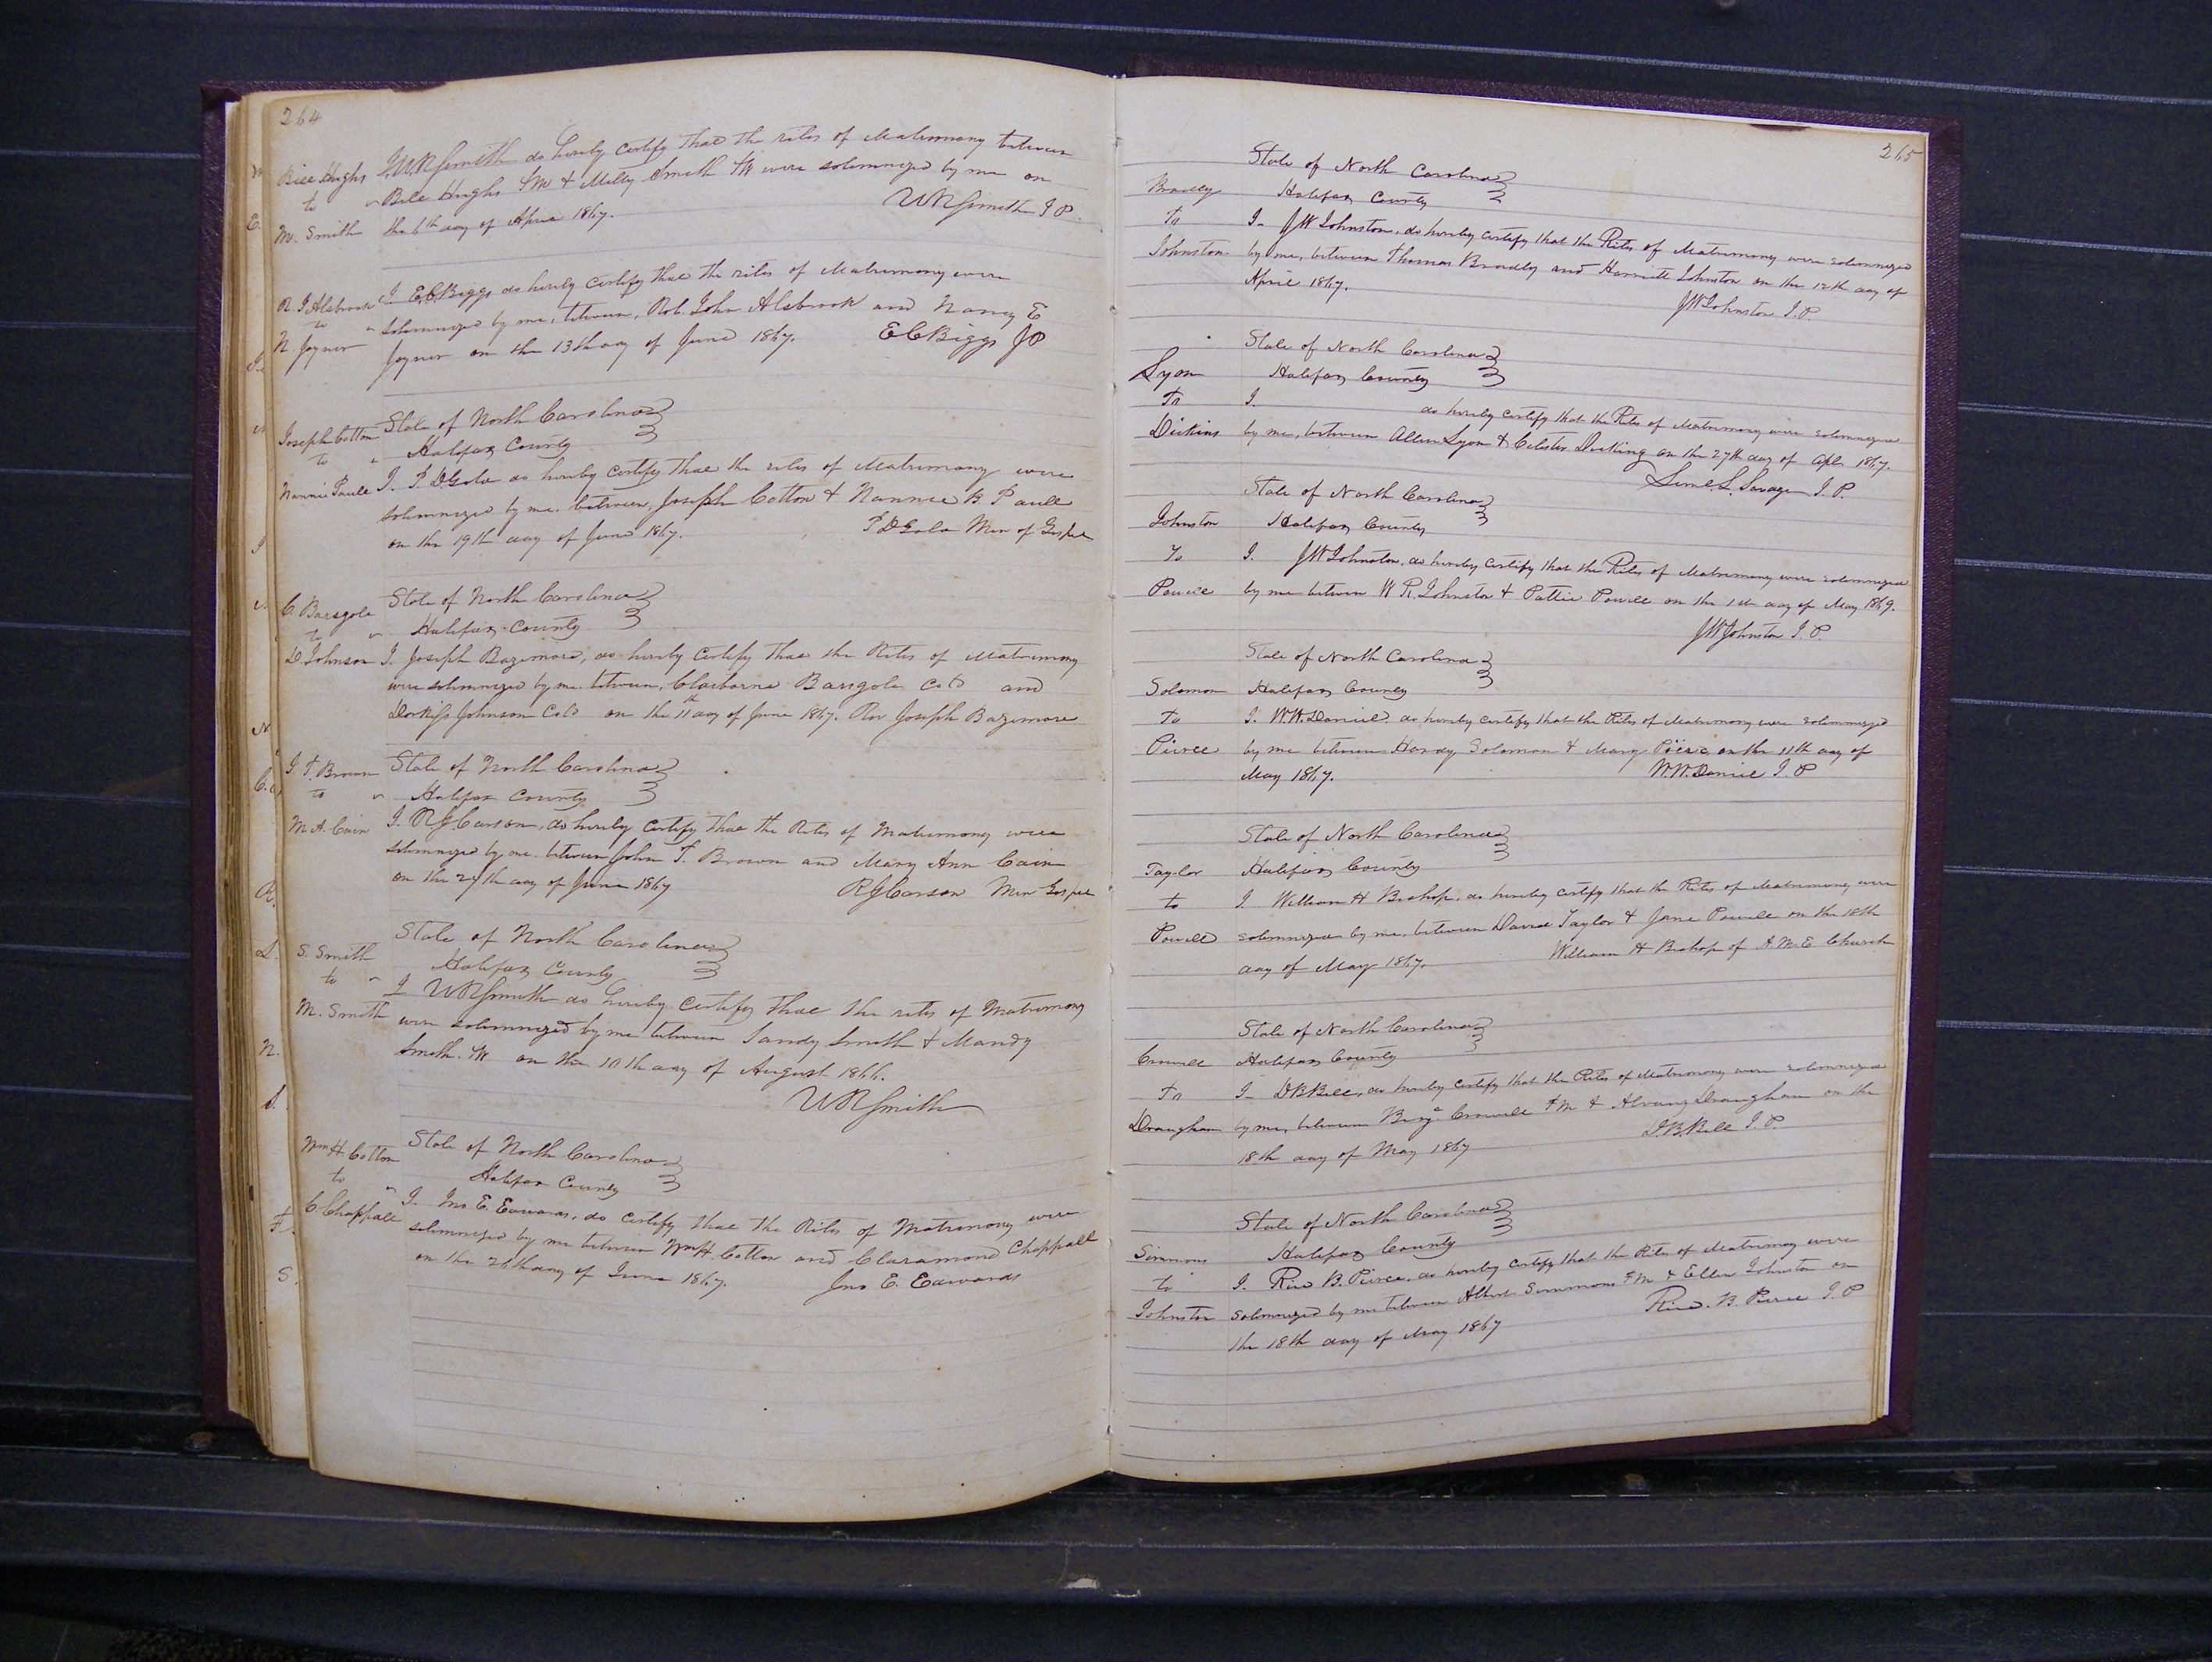 264
Bill Hughs I, W R Smith do hereby certify that the rites of Matrimony between
to Bill Hughs FM & Milly Smith FW were solemnized by me on
M. Smith the 6th day of April 1867. W R Smith J P.
R. J Alsbrook I E. C. Biggs do hereby certify that the rites of Matrimony were
to solemnized by me, between, Rob. John Alsbrook and Nancy E
N. Joyner Joyner on the 13th day of June 1867. E C Biggs J P
Joseph Cotton State of North Carolina
to Halifax County
Nannie Paull I. P. D. Gold do hereby certify that the rites of Matrimony were
solemnized by me. between, Joseph Cotton & Nannie B Paull
on the 19th day of June 1867. P D Gold Min of Gospel
C. Barsgole State of North Carolina
to Halifax County
D. Johnson I. Joseph Bazemore, do hereby certify that the Rites of Matrimony
were solemnized by me. between, Claiborne Barsgole Cold and
Johnson Cold on the 11th day of June 1867. Rev Joseph Bazemore
J. T. Brown State of North Carolina
to Halifax County
M. A. Cain I. R J Carson, do hereby certify that the Rites of Matrimony were
solemnized by me. between John T. Brown and Mary Ann Cain
on the 27th day of June 1867 R J Carson Min Gospel
State of North Carolina
S. Smith Halifax County
to I W R Smith do hereby certify that the rites of Matrimony
M. Smith were solemnized by me between Sandy Smith & Mandy
Smith. FW on the 10th day of August 1866.
W R Smith
Wm H. Cotton State of North Carolina
to Halifax County
C Chappall I. Jno E. Edwards, do certify that the Rites of Matrimony were
solemnized by me between Wm H Cotton and Claramond Chappall
on the 26th day of June 1867. Jno E. Edwards
265
State of North Carolina
Bradly Halifax County
To I- J W Johnston, do hereby certify that the Rites of Matrimony were solemnized
Johnston by me, between Thomas Bradly and Harriett Johnston on the 12th day of
April 1867.
J W Johnston J. P.
State of North Carolina
Lyon Halifax County
To I. do hereby certify that the Rites of Matrimony were solemnized
Dickins by me, between Allen Lyon & Dickins on the 27th day of Apl. 1867.
L. Savage J. P.
State of North Carolina
Johnston Halifax County
To I. J W Johnston, do hereby certify that the Rites of Matrimony were solemnized
Powell by me between W R. Johnston & Pattie Powell on the 1st day of May 1867.
J W Johnston J. P.
State of North Carolina
Solomon Halifax County
To I. W. W. Daniel do hereby certify that the Rites of Matrimony were solemnized
Pierce by me between Hardy Solomon & Mary Pierce on the 11th day of
May 1867. W. W. Daniel J. P
State of North Carolina
Taylor Halifax County
to I. William H Bishop, do hereby certify that the Rites of Matrimony were
Powell solemnized by me, between David Taylor & Jane Powell on the 18th
day of May 1867. William H Bishop of A. M. E. Church
State of North Carolina
Crowell Halifax County
To I- D B Bell, do hereby certify that the Rites of Matrimony were solemnized
Draughan by me, between Benj. Crowell FM & Draughan on the
18th day of May 1867 D. B. Bell J. P.
State of North Carolina
Simmons Halifax County
to I. Rice B. Pierce, do hereby certify that the Rites of Matrimony were
Johnston solemnized by me between Albert Simmons FM & Ellen Johnston on
the 18th day of May 1867 Rice. B. Pierce J. P